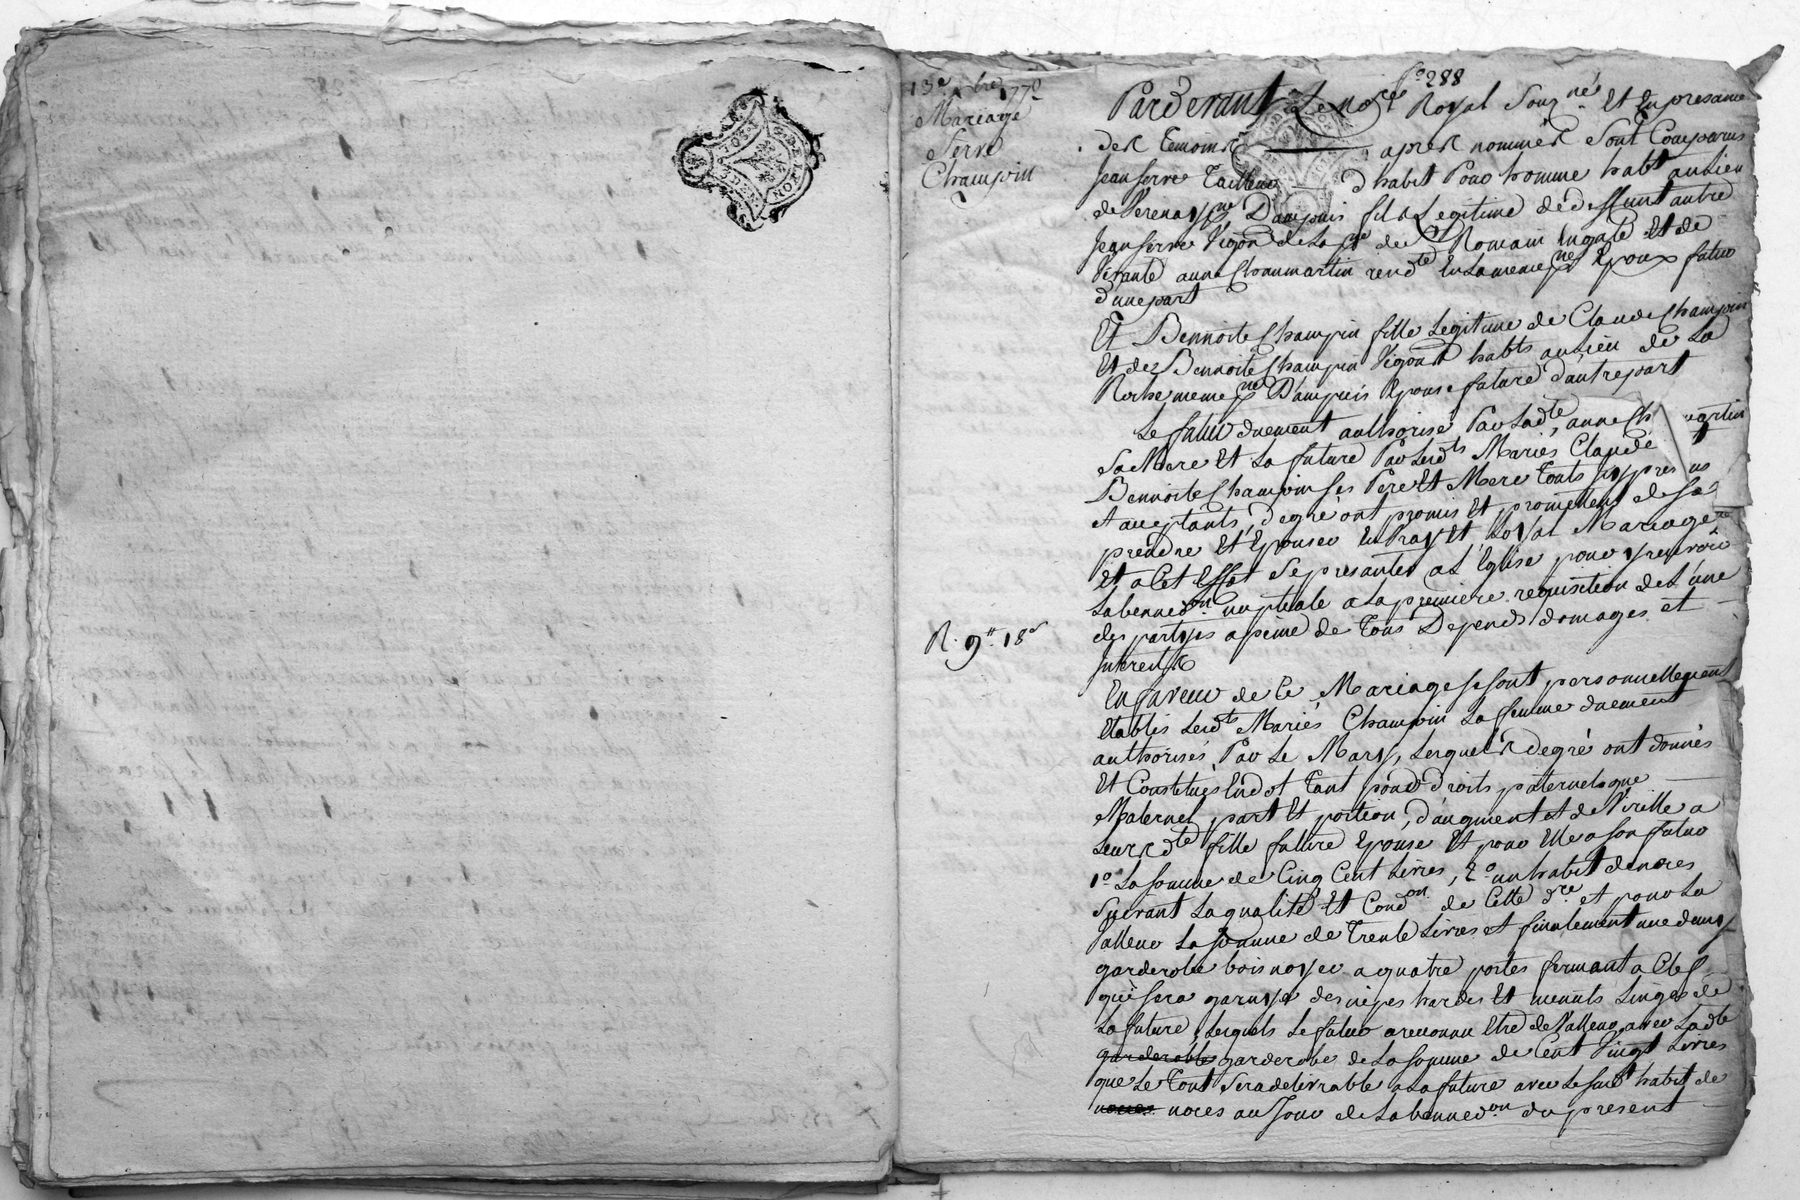 fo 288
13e xbre 177
Mariage
Serre
Champin
Pardevant Le nore Royal Souz.né Et En presance
des temoins apres nommés Sont Comparus
Jean Serre Tailleur d'habit Pour homme habt au Lieu
de Verenay pne Dampuis fils Legitime de deffunt autre
Jean Serre Vigon de la pse de St Romain En gale Et de
Vivante anne Chaumartin rendte En La meme pse Epoux futur
d'une part
Et Bennoite Champin fille Legitime de Claude Champin
Et de Bennoite Champin Vigons habts au Lieu de La
Roche meme pse Dampuis Epouse future d'autre part
Le futur duement authorisé Par Ladte anne Ch martin
Sa Mere Et La future Par Lesdts Mariés Claude
Bennoite Champin ses Pere Et Mere touts icy pres ns
et aceptants, de gré ont promis Et promettent de se
prendre Et Epouser En Vray Et Loyal Mariage
Et a Cet Effet Se presanter a L'Eglise pour y recevoir
La bennedon nuptiale a La premiere requisition de L'une
des partyes a peine de Tous Depends domages et
Interests
R. 9tt 18s
En faveur de Ce Mariage se sont personnellement
Etablis Lesdts Mariés Champin La femme duement
authorisés Par Le Mary, Lesquels de gré ont donnés
Et Constitués En dot tant pour droits paternels que
Maternel part Et portion, d'augment et de Virille a
Leurs dte fille future Epouse Et pour Elle a Son futur
1o La Somme de Cinq Cent Livres, 2o un habit de noces
Suivant La qualité Et Condon de Cette dre et pour La
Valleur La Somme de Trente Livres et finalement une demy
garderobe bois noyer a quatre portes fermant a Clef
qui sera garnye des nipes hardes Et menuts Linges de
La future, Lesquels Le futur a reconnu Etre de Valleur avec Ladte
garderobe garderobe de La Somme de Cent Vingt Livres
que Le Tout Sera delivrable a La future avec Le susdt habit de
noces noces au Jour de La bennedon du present